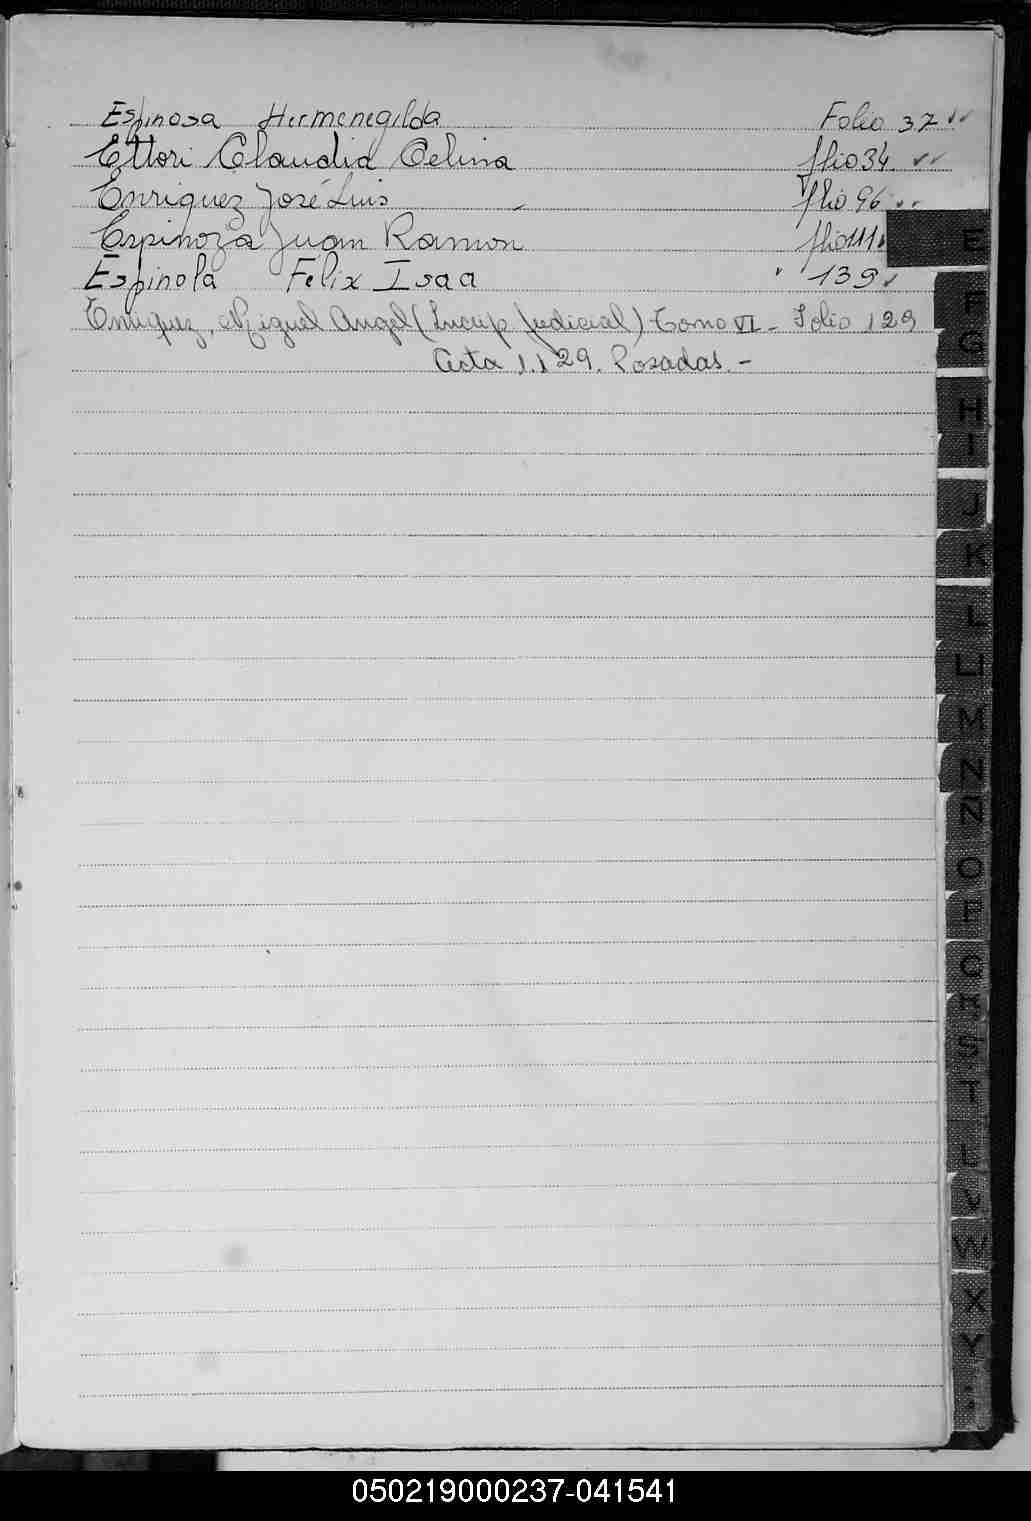 Espinosa Hermenegilda Folio 37
Ettori Claudia Celina folio 34
Enriquez José Luis folio 96
Espinoza Juan Ramon folio 111
Espinola Félix Isaa " 139
Enriquez, Miguel Angel (Inscrip Judicial) Tomo VI - Folio 129
Acta 1.129. Posadas. -
E
F
G
H
I
J
K
L
LL
M
N
Ñ
O
P
Q
R
S
T
V
W
X
Y
050219000237-041541